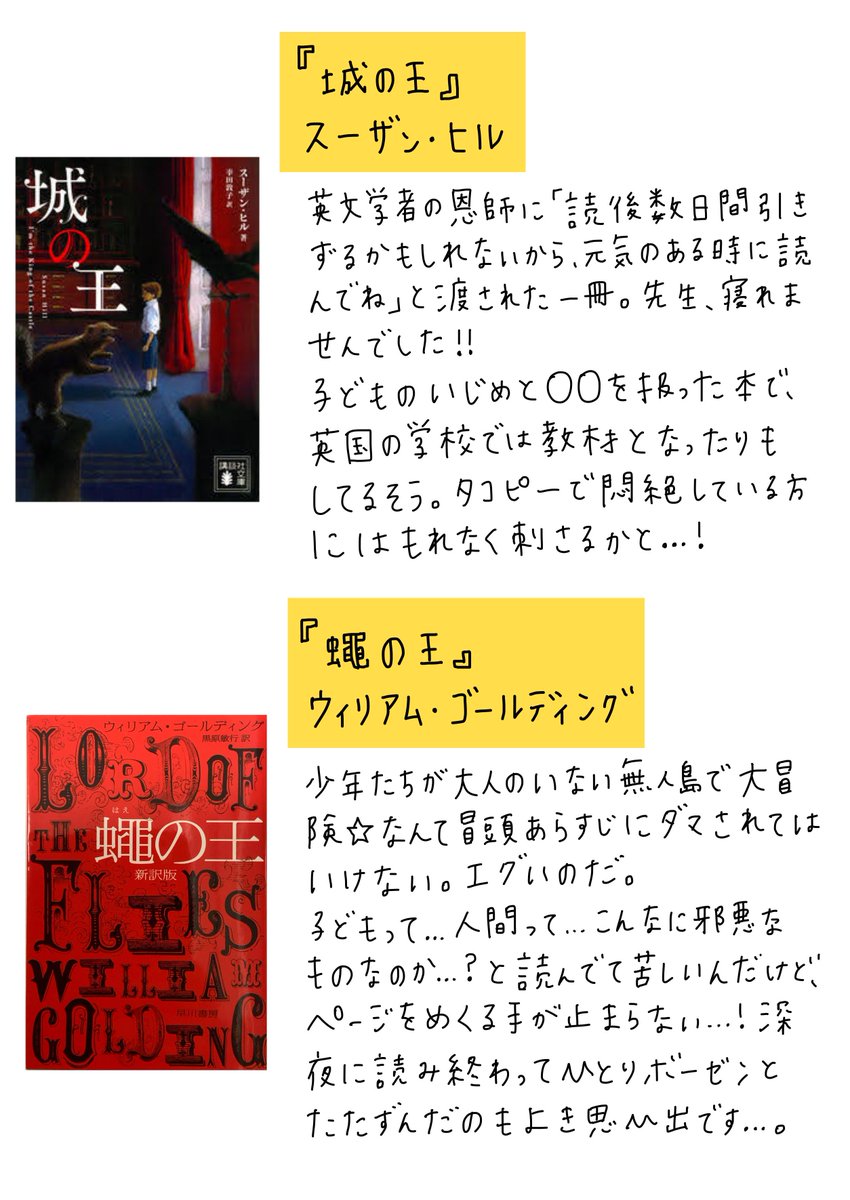 『城の王』
スーザン・ヒル
スーザン・ヒル 著
幸田敦子 訳
城の王
I'm the King of the Castle
Susan Hill
講談社文庫
英文学者の恩師に「読後数日間引き
ずるかもしれないから、元気のある時に読
んでね」と渡された一冊。先生、寝れま
せんでした!!
子どものいじめと〇〇を扱った本で、
英国の学校では教材となったりも
してるそう。タコピーで悶絶している方
にはもれなく刺さるかと…!
『蠅の王』
ウィリアム・ゴールディング
ウィリアム・ゴールディング
黒原敏行 訳
LORD OF
THE
はえ
蠅の王
新訳版
FLIES
WILLIAM
早川書房
GOLDING
少年たちが大人のいない無人島で大冒
険☆なんて冒頭あらすじにダマされては
いけない。エグいのだ。
子どもって…人間って…こんなに邪悪な
ものなのか…?と読んでて苦しいんだけど、
ページをめくる手が止まらない…!深
夜に読み終わってひとりボーゼンと
たたずんだのもよき思い出です…。